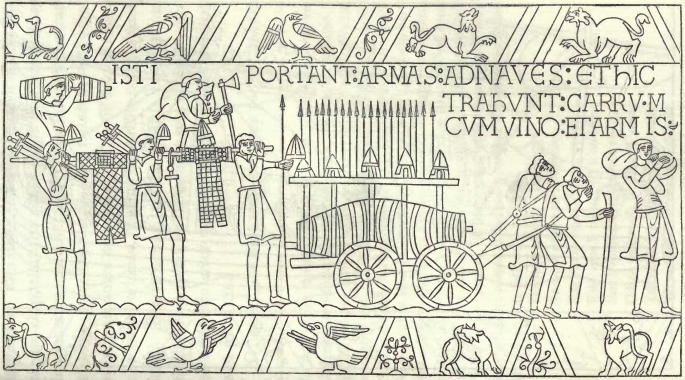 ISTI PORTANT:ARMAS:ADNAVES:EThIC
TRAhUNT:CARRV·M
CVMVINO:ETARMIS: